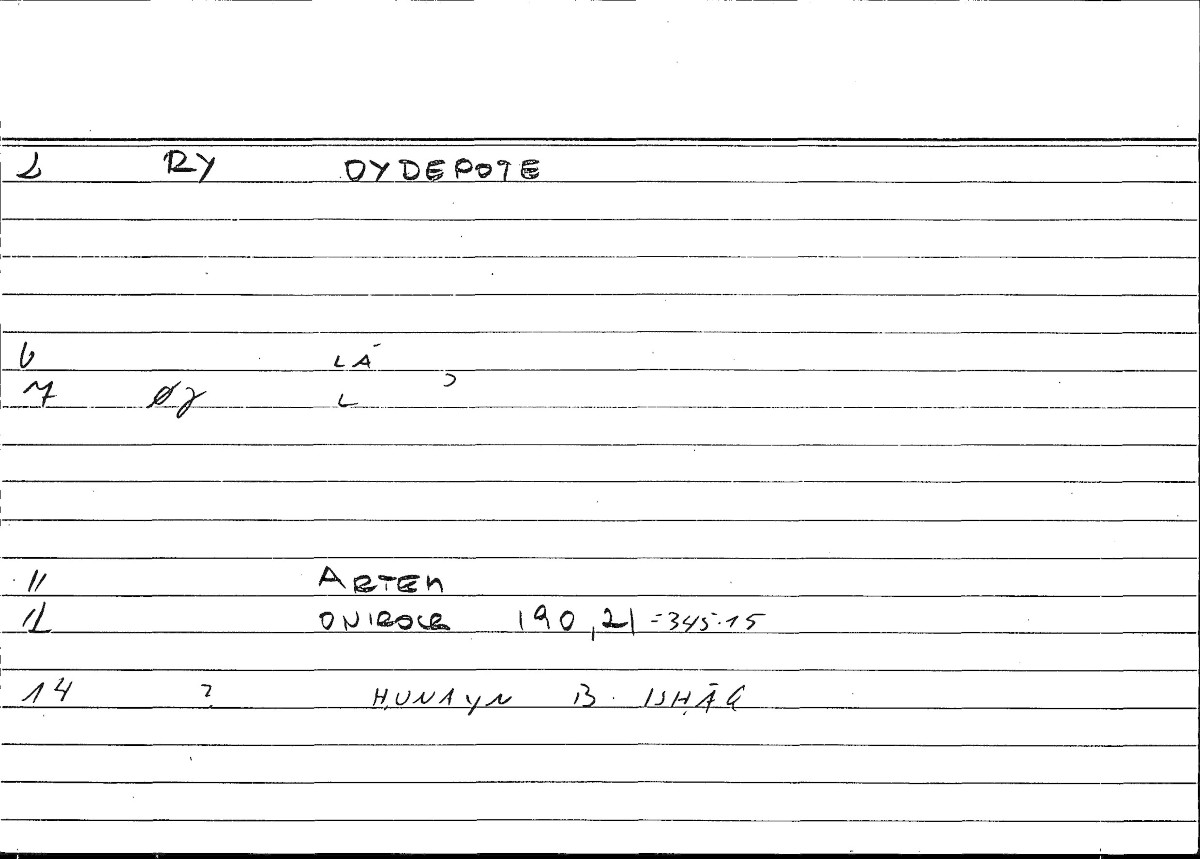 2 RY OYDEPOTE
6 LĀ
7 Øγ L ʾ
11 ARTEM
12 ONIROCR 190,21 = 345.15
14 ? ḤUNAYN B. ISḤĀQ